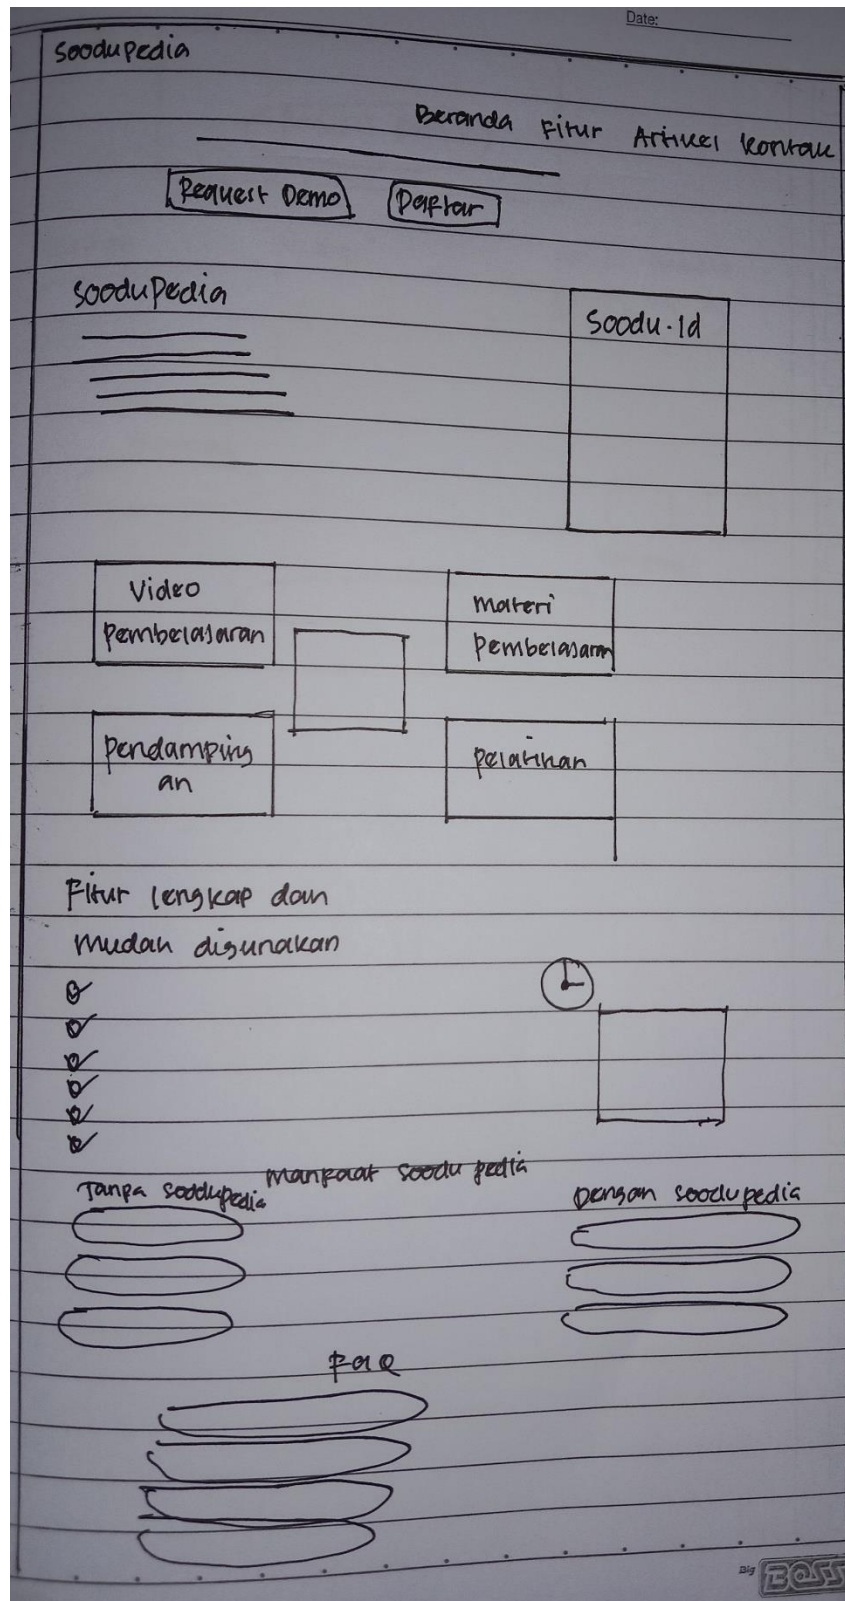 Date:
Soodupedia
Beranda Fitur Artikel Kontak
Request Demo Daftar
Soodupedia
Soodu.Id
Video
Pembelajaran
materi
Pembelajaran
Pendamping
an
Pelatihan
Fitur lengkap dan
mudah digunakan
Manfaat soodu pedia
Tanpa soodupedia
Dengan soodupedia
FaQ
Big BOSS